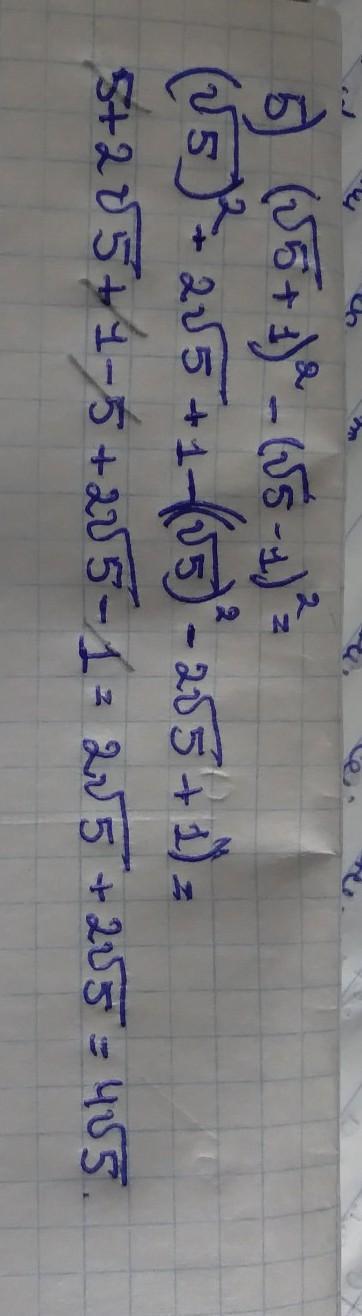 5) (√5+1)² - (√5-1)² =
(√5)² + 2√5 + 1 - ((√5)² - 2√5 + 1) =
5 + 2√5 + 1 - 5 + 2√5 - 1 = 2√5 + 2√5 = 4√5.